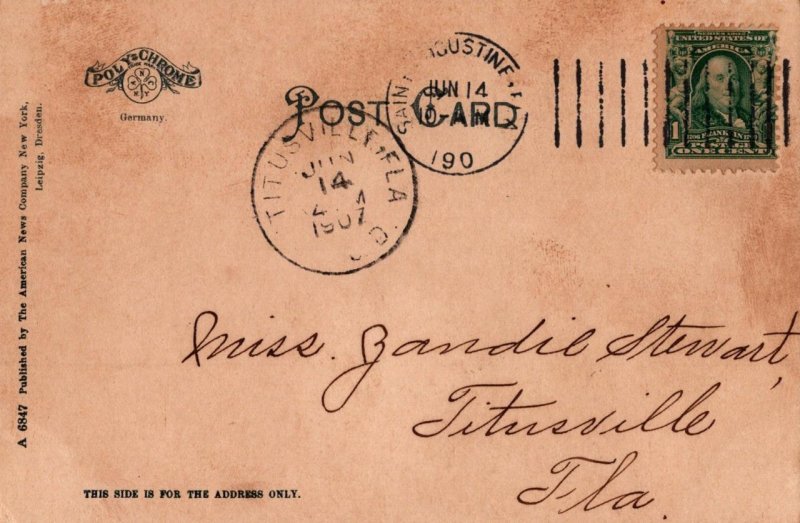 POLY-CHROME
Germany.
POST CARD
SAINT AUGUSTINE, F
JUN 14
190
TITUSVILLE, FLA
JUN
14
1907
SERIES 1902
UNITED STATES OF
AMERICA
1
FRANKLIN
POSTAGE
ONE CENT
A 6847 Published by The American News Company New York,
Leipzig, Dresden.
Miss. Zandie Stewart,
Titusville
Fla.
THIS SIDE IS FOR THE ADDRESS ONLY.